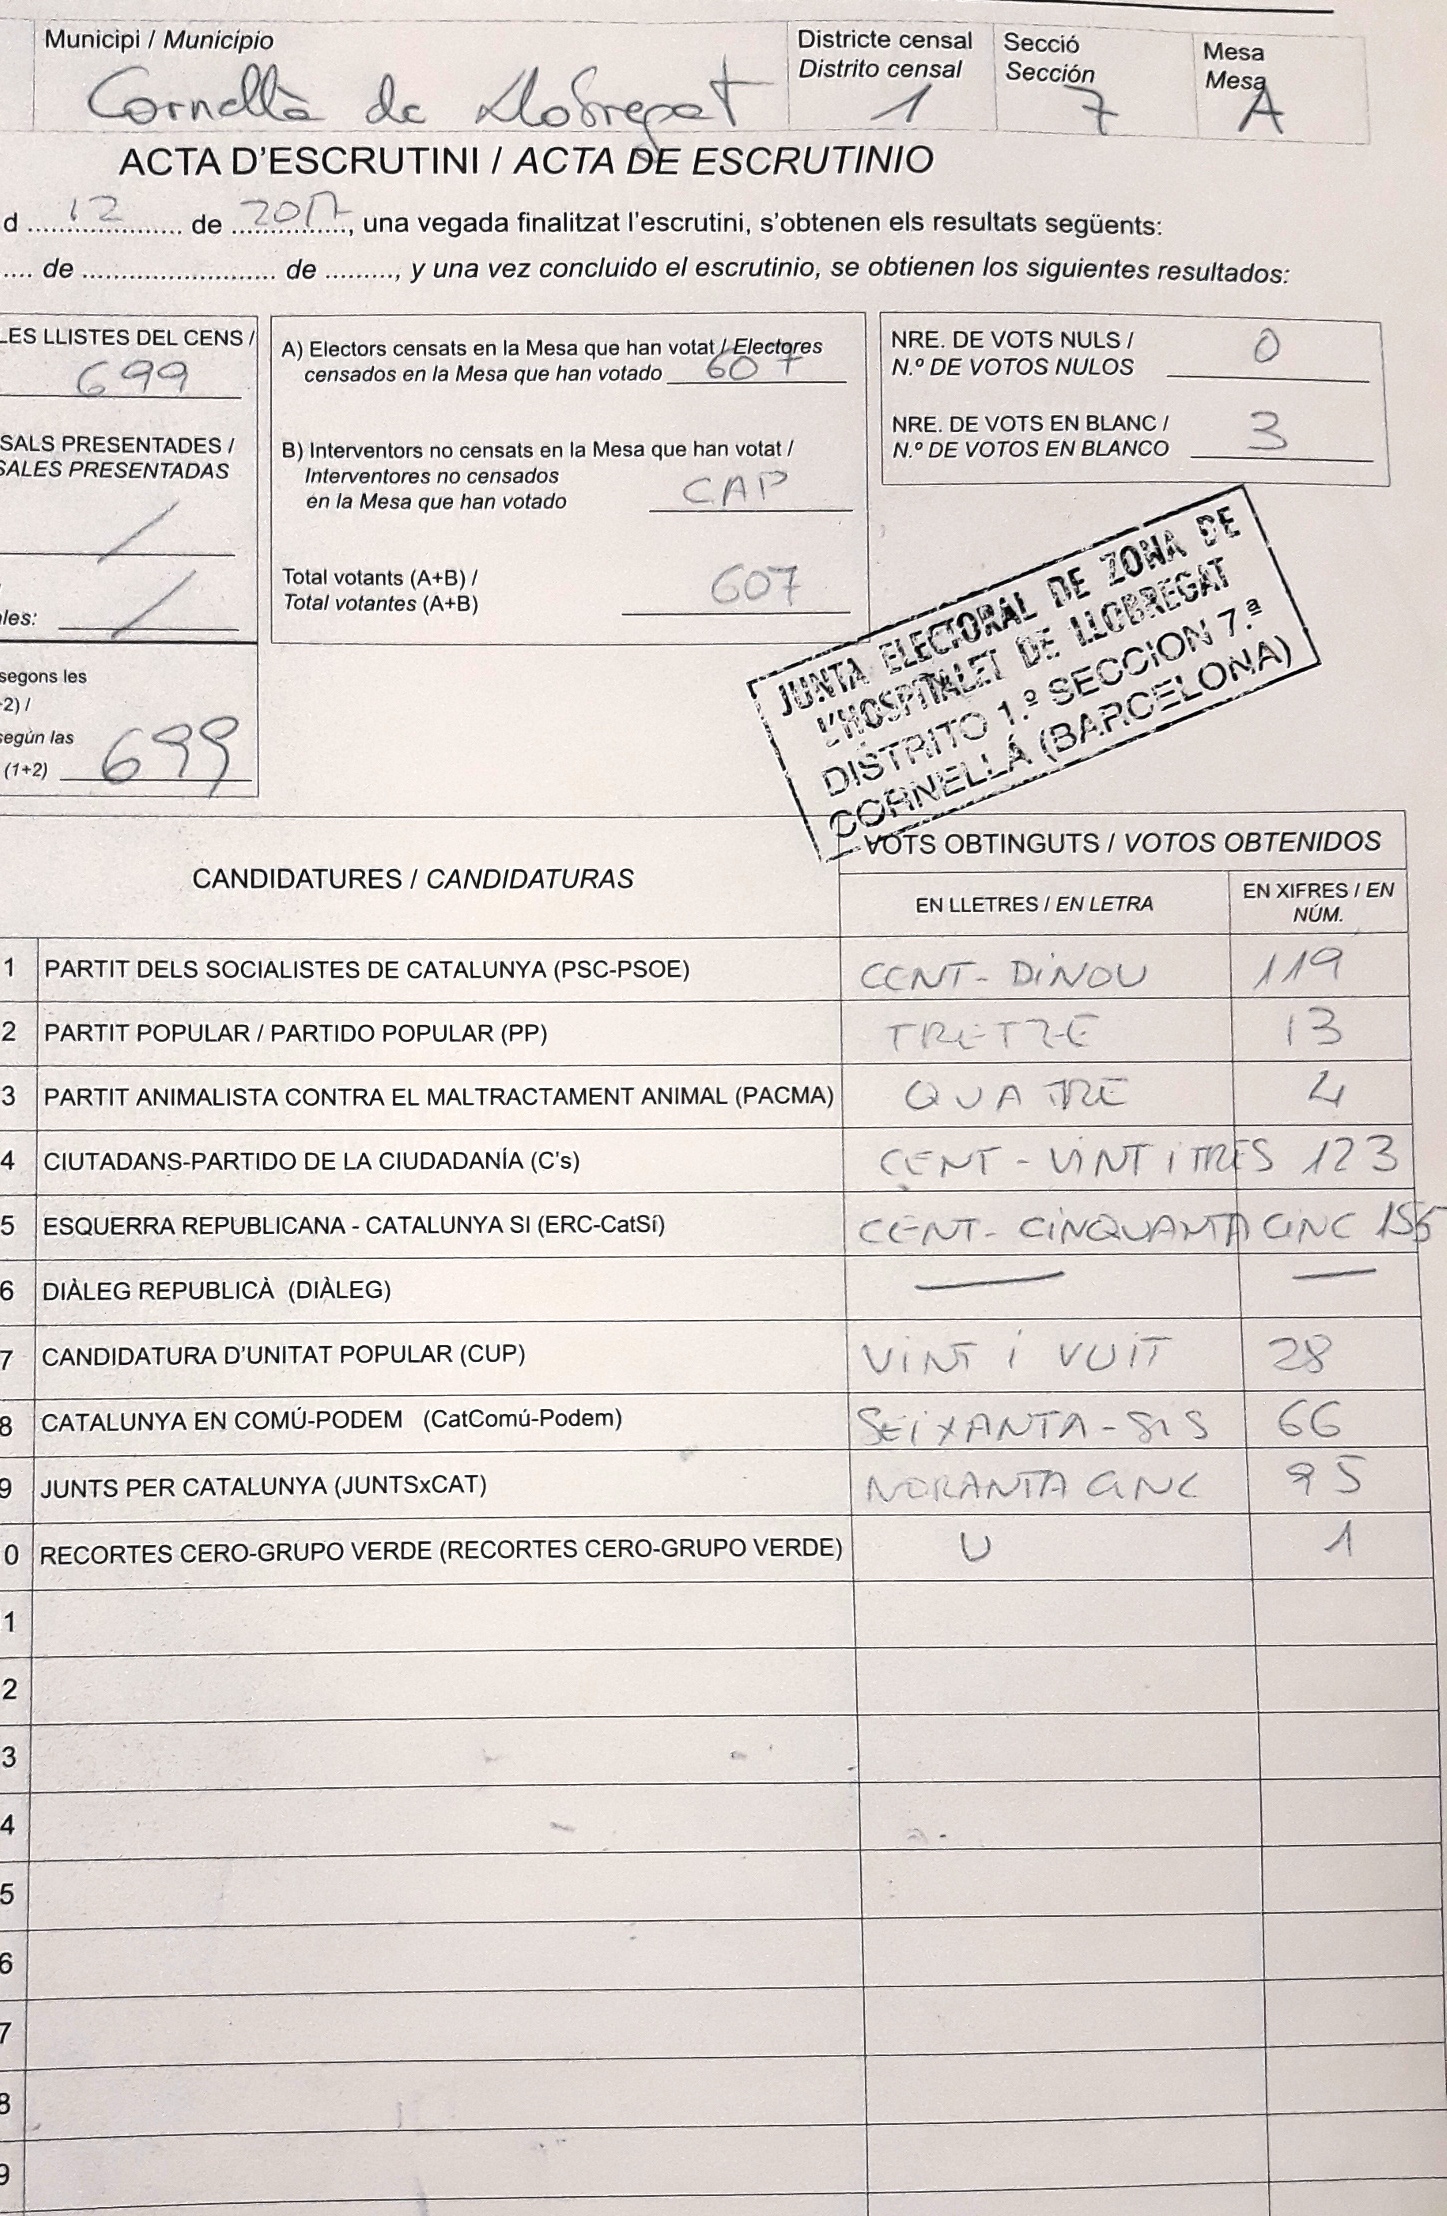 Municipi / Municipio
Cornellà de Llobregat
Districte censal
Distrito censal
1
Secció
Sección
7
Mesa
Mesa
A
ACTA D'ESCRUTINI / ACTA DE ESCRUTINIO
d 12 de 2017, una vegada finalitzat l'escrutini, s'obtenen els resultats següents:
.... de .......................... de ........., y una vez concluido el escrutinio, se obtienen los siguientes resultados:
LES LLISTES DEL CENS /
699
SALS PRESENTADES /
SALES PRESENTADAS
/
les: /
segons les
2) /
según las
(1+2) 699
A) Electors censats en la Mesa que han votat / Electores
censados en la Mesa que han votado 607
B) Interventors no censats en la Mesa que han votat /
Interventores no censados
en la Mesa que han votado CAP
Total votants (A+B) /
Total votantes (A+B) 607
NRE. DE VOTS NULS /
N.º DE VOTOS NULOS 0
NRE. DE VOTS EN BLANC /
N.º DE VOTOS EN BLANCO 3
JUNTA ELECTORAL DE ZONA DE
L'HOSPITALET DE LLOBREGAT
DISTRITO 1.º SECCION 7.ª
CORNELLÁ (BARCELONA)
CANDIDATURES / CANDIDATURAS
VOTS OBTINGUTS / VOTOS OBTENIDOS
EN LLETRES / EN LETRA
EN XIFRES / EN
NÚM.
1 PARTIT DELS SOCIALISTES DE CATALUNYA (PSC-PSOE) CENT-DINOU 119
2 PARTIT POPULAR / PARTIDO POPULAR (PP) TRETZE 13
3 PARTIT ANIMALISTA CONTRA EL MALTRACTAMENT ANIMAL (PACMA) QUATRE 4
4 CIUTADANS-PARTIDO DE LA CIUDADANÍA (C's) CENT-VINT I TRES 123
5 ESQUERRA REPUBLICANA - CATALUNYA SI (ERC-CatSí) CENT-CINQUANTA CINC 155
6 DIÀLEG REPUBLICÀ (DIÀLEG) — —
7 CANDIDATURA D'UNITAT POPULAR (CUP) VINT I VUIT 28
8 CATALUNYA EN COMÚ-PODEM (CatComú-Podem) SEIXANTA-SIS 66
9 JUNTS PER CATALUNYA (JUNTSxCAT) NORANTA CINC 95
0 RECORTES CERO-GRUPO VERDE (RECORTES CERO-GRUPO VERDE) U 1
1
2
3
4
5
6
7
8
9